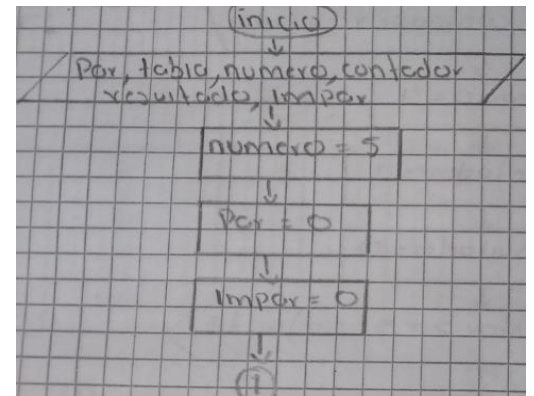 inicio
Par, tabla, numero, contador
resultado, impar
numero = 5
Par = 0
Impar = 0
1